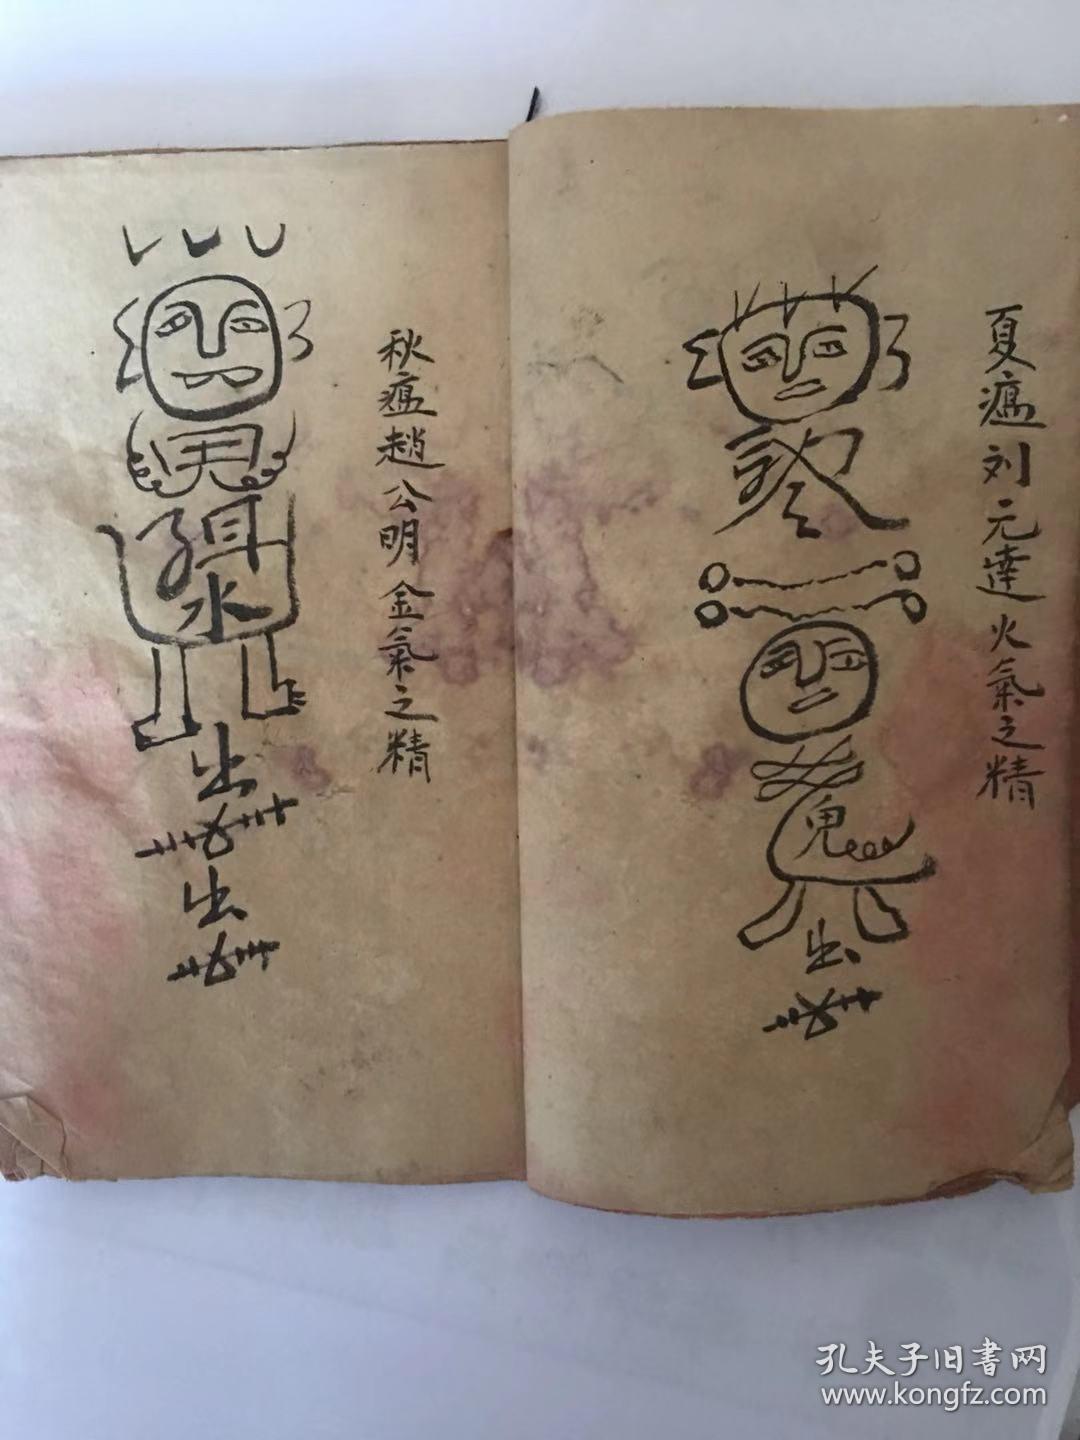 夏瘟刘元達火氣之精
鬼
出
秋瘟趙公明金氣之精
水
出
出
孔夫子旧書网
www.kongfz.com